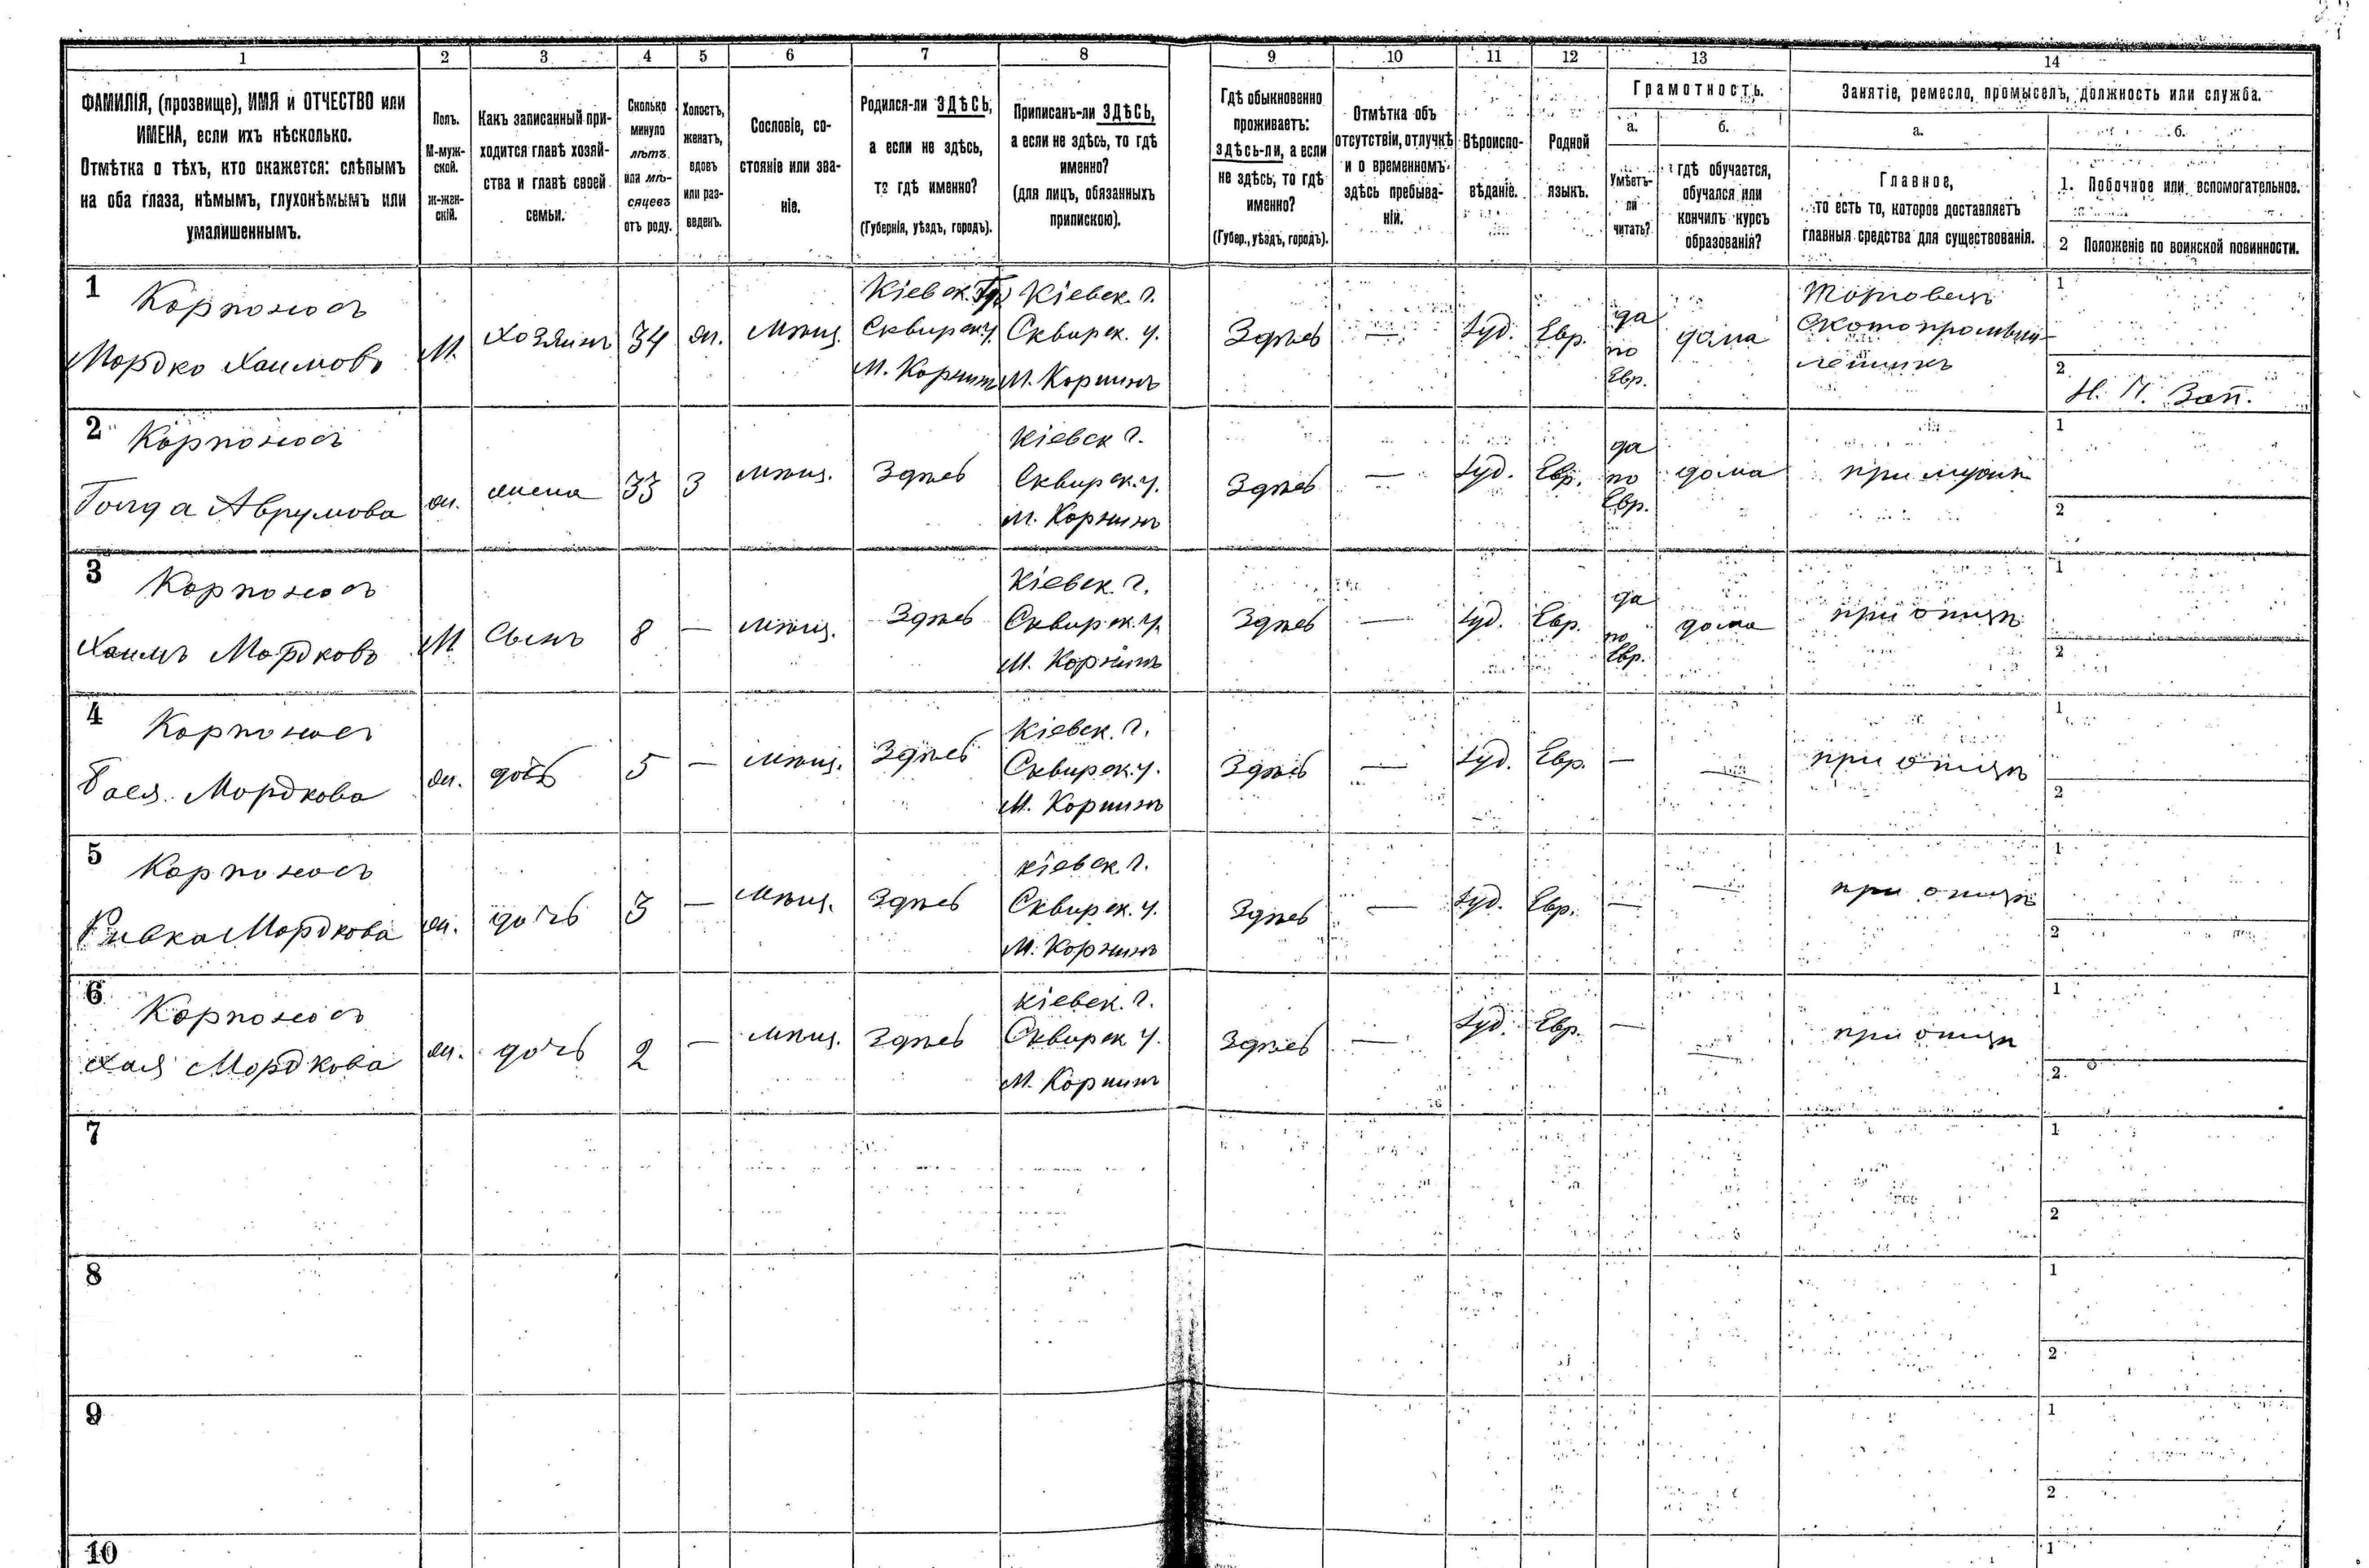 1 2 3 4 5 6 7 8 9 10 11 12 13 14
ФАМИЛІЯ, (прозвище), ИМЯ и ОТЧЕСТВО или
ИМЕНА, если ихъ нѣсколько.
Отмѣтка о тѣхъ, кто окажется: слѣпымъ
на оба глаза, нѣмымъ, глухонѣмымъ или
умалишеннымъ.
Полъ.
М-муж-
ской.
ж-жен-
скій.
Какъ записанный при-
ходится главѣ хозяй-
ства и главѣ своей
семьи.
Сколько
минуло
лѣтъ
или мѣ-
сяцевъ
отъ роду.
Холостъ,
женатъ,
вдовъ
или раз-
веденъ.
Сословіе, со-
стояніе или зва-
ніе.
Родился-ли ЗДѢСЬ,
а если не здѣсь,
то гдѣ именно?
(Губернія, уѣздъ, городъ).
Приписанъ-ли ЗДѢСЬ,
а если не здѣсь, то гдѣ
именно?
(для лицъ, обязанныхъ
припискою).
Гдѣ обыкновенно
проживаетъ:
здѣсь-ли, а если
не здѣсь, то гдѣ
именно?
(Губер., уѣздъ, городъ).
Отмѣтка объ
отсутствіи, отлучкѣ
и о временномъ
здѣсь пребыва-
ніи.
Вѣроиспо-
вѣданіе.
Родной
языкъ.
Грамотность.
а.
Умѣетъ-
ли
читать?
б.
гдѣ обучается,
обучался или
кончилъ курсъ
образованія?
Занятіе, ремесло, промыселъ, должность или служба.
а.
Главное,
то есть то, которое доставляетъ
главныя средства для существованія.
б.
1. Побочное или вспомогательное.
2 Положеніе по воинской повинности.
1
Корпоносъ
Мордко Хаимовъ
М.
хозяинъ
34
ж.
мѣщ.
Кіевск. Гр
Сквирск у.
М. Корнинъ
Кіевск. г.
Сквирск. у.
М. Корнинъ
Здѣсь
—
Іуд.
Евр.
да
по
Евр.
дома
Торговецъ
Скотопромыш-
ленникъ
1
2
Н. Ч. Зап.
2
Корпоносъ
Голда Аврумова
ж.
жена
33
З
мѣщ.
Здѣсь
Кіевск г.
Сквирск. у.
м. Корнинъ
Здѣсь
—
Іуд.
Евр.
да
по
Евр.
дома
при мужѣ
1
2
3
Корпоносъ
Хаимъ Мордковъ
М
Сынъ
8
—
мѣщ.
Здѣсь
Кіевск. г.
Сквирск. у.
М. Корнинъ
Здѣсь
—
Іуд.
Евр.
да
по
Евр.
дома
при отцѣ
1
2
4
Корпоносъ
Бася Мордкова
ж.
дочь
5
—
мѣщ.
Здѣсь
Кіевск. г.
Сквирск. у.
М. Корнинъ
Здѣсь
—
Іуд.
Евр.
—
—
при отцѣ
1
2
5
Корпоносъ
Ривка Мордкова
ж.
дочь
3
—
мѣщ.
Здѣсь
кіевск. г.
Сквирск. у.
М. Корнинъ
Здѣсь
—
Іуд.
Евр.
—
—
при отцѣ
1
2
6
Корпоносъ
Хая Мордкова
ж.
дочь
2
—
мѣщ.
Здѣсь
кіевск. г.
Сквирск у.
М. Корнинъ
Здѣсь
—
Іуд.
Евр.
—
—
при отцѣ
1
2
7
1
2
8
1
2
9
1
2
10
1